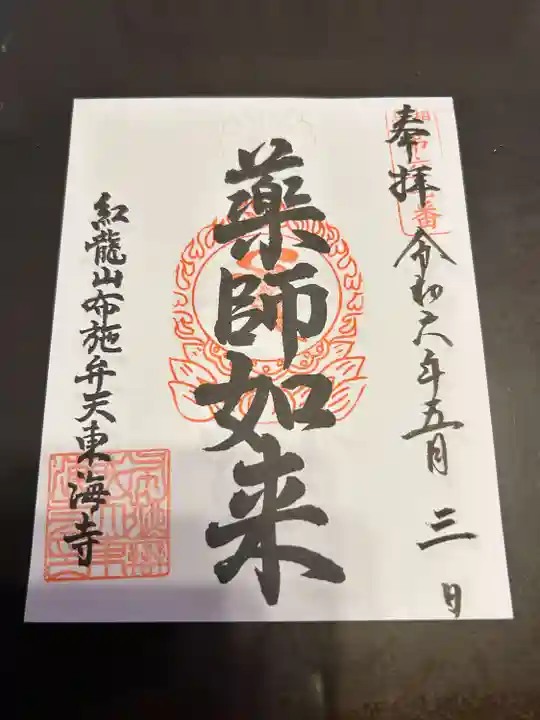 奉拝 令和六年五月三日
薬師如来
紅龍山布施弁天東海寺